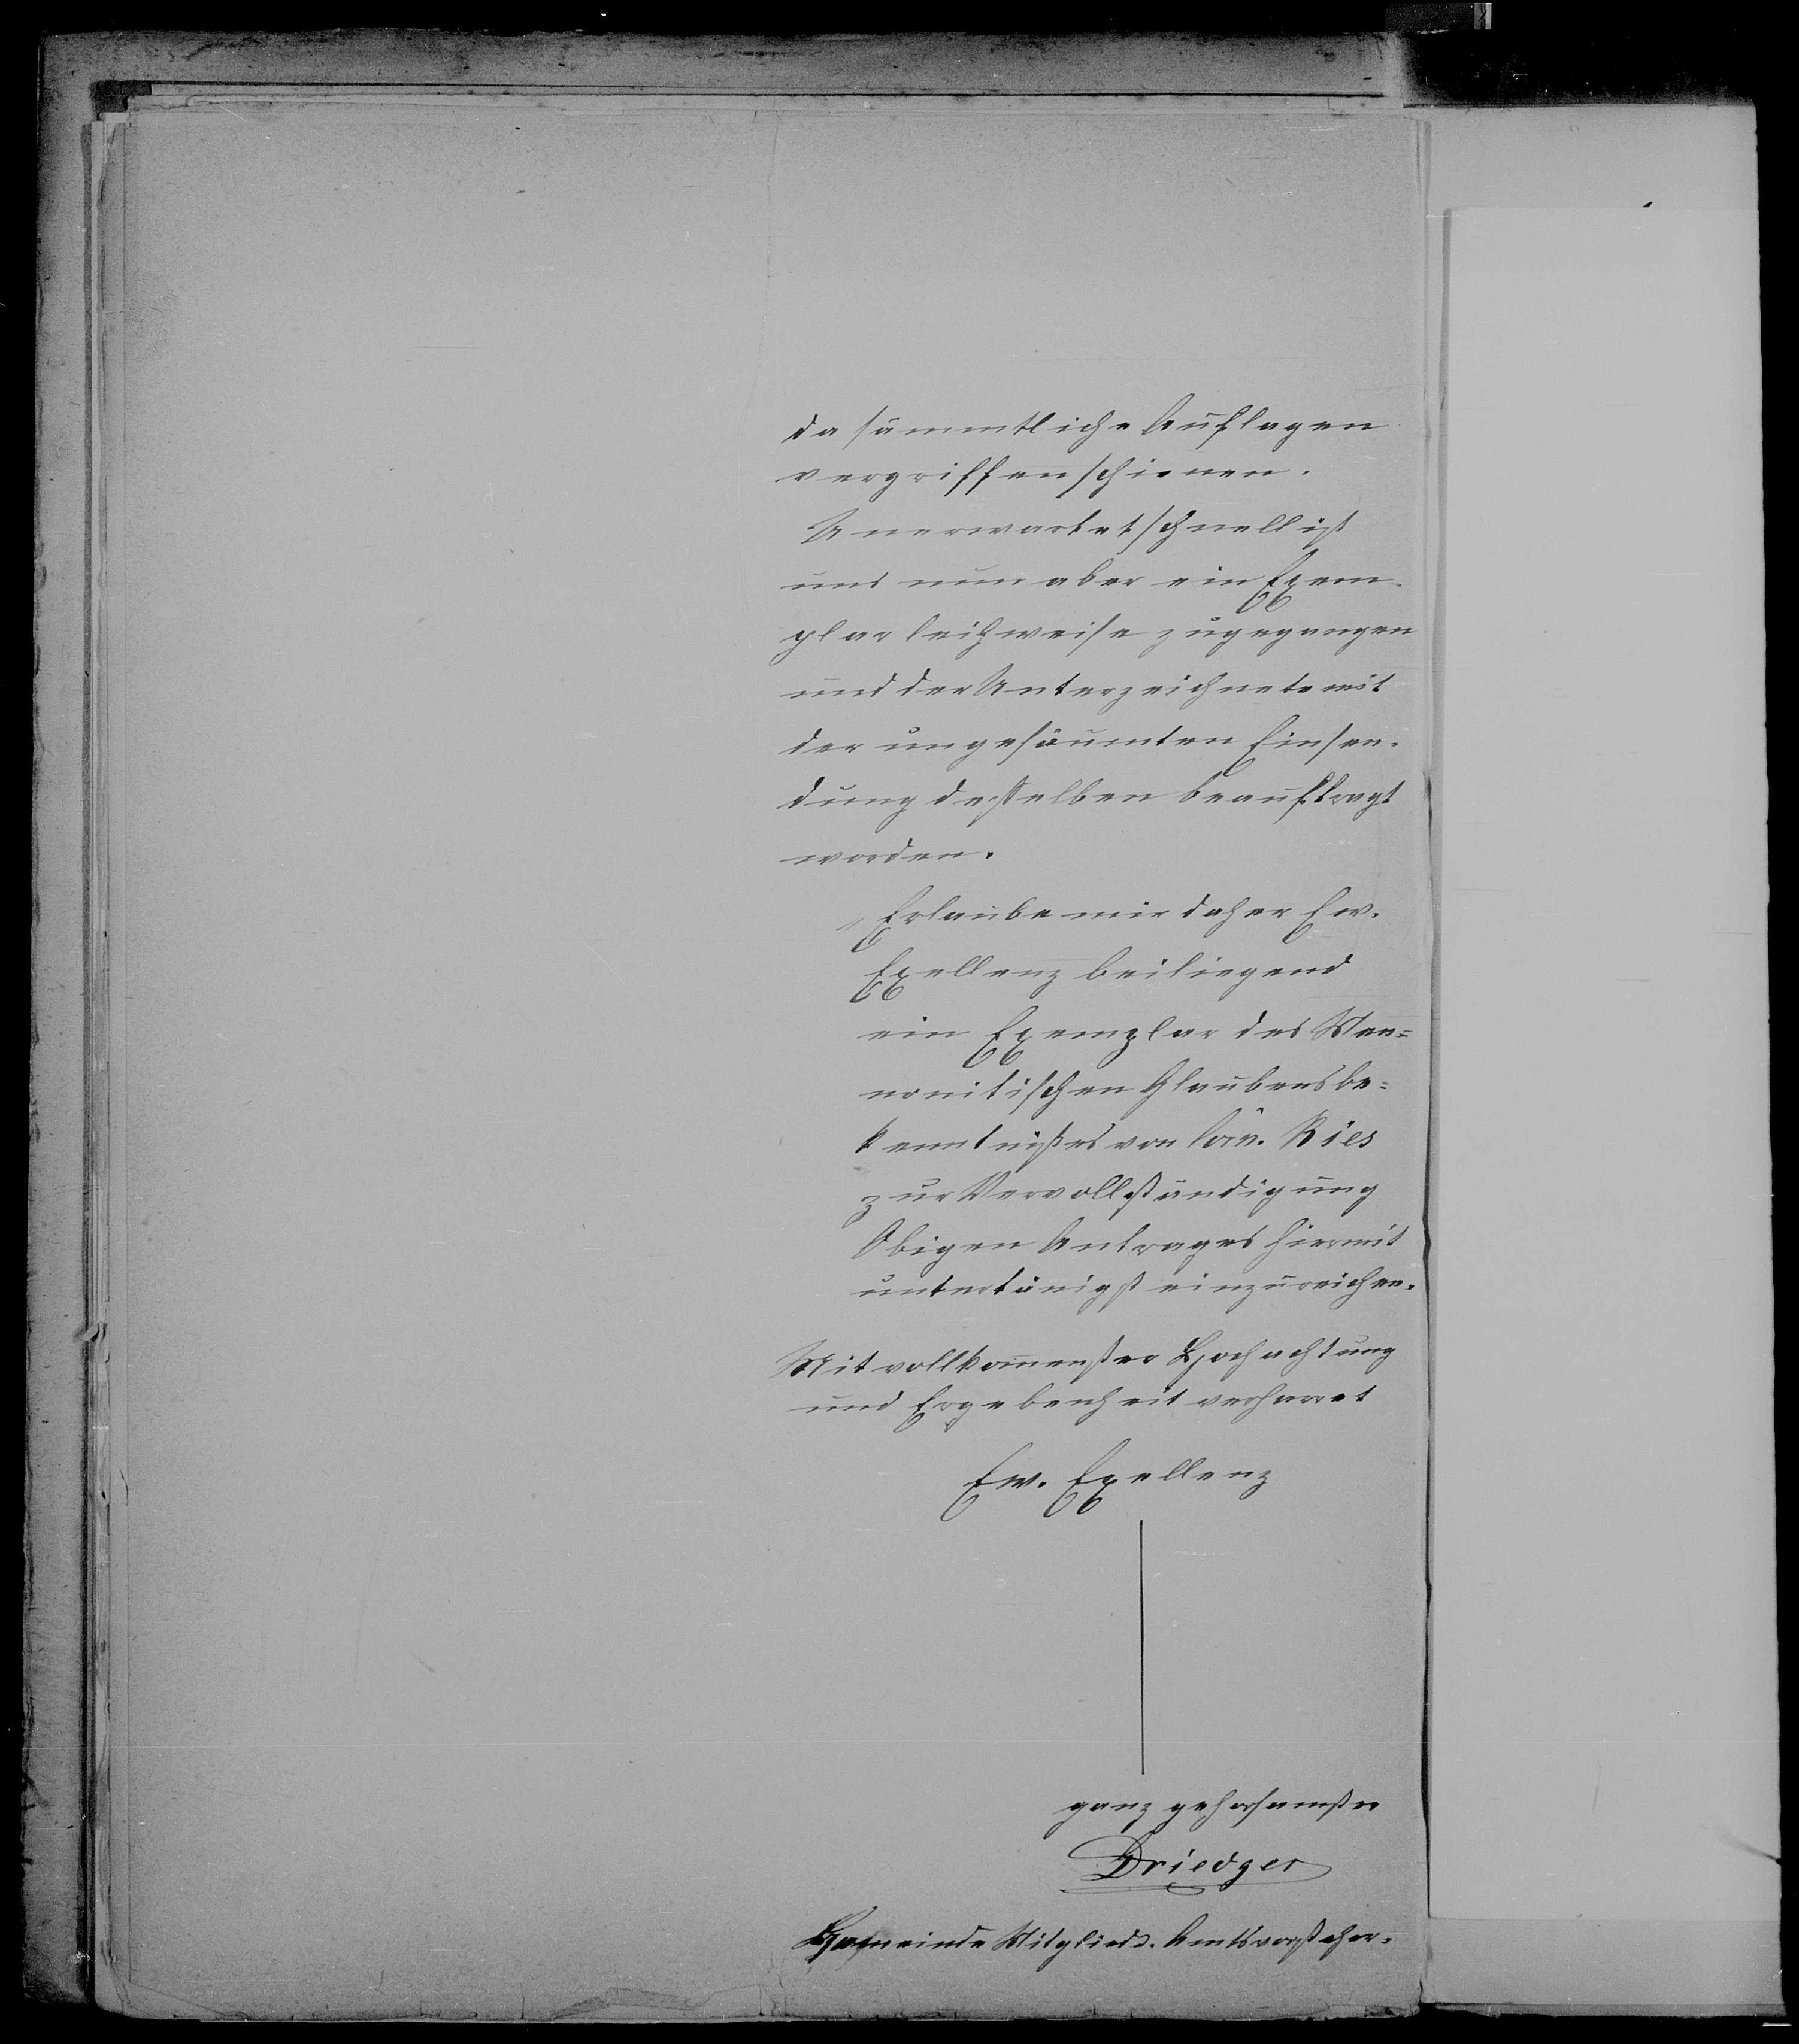 da sämmtliche Auflagen
vergriffen schienen.
Unerwartet schnell ist
uns nun aber ein Exem-
plar leihweise zugegangen
und der Unterzeichnete mit
der ungesäumten Einsen-
dung desselben beauftragt
worden.
Erlaube mir daher Ew.
Exellenz beiliegend
ein Exemplar des Men=
nonitischen Glaubensbe=
kenntnißes von Ries
zur Vervollständigung
Obigen Antrages hiermit
untertänigst einzureichen.
Mit vollkommenster Hochachtung
und Ergebenheit verharret
Ew. Exellenz
ganz gehorsamster
Driedger
Gemeinde Mitglied. Amtsvorsteher.